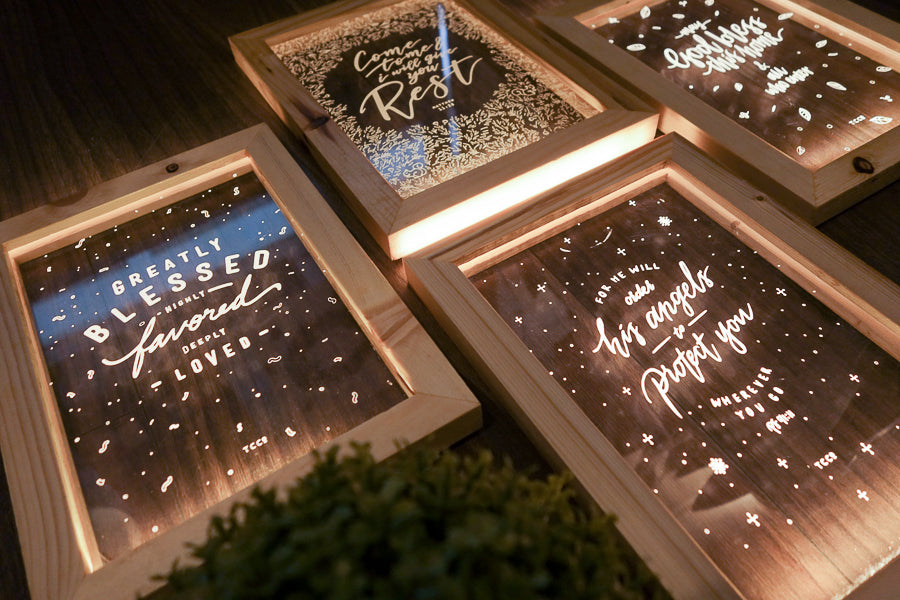 Come
to me &
i will give
you
Rest
may
God bless
this home
& all
who enter
TCCO
GREATLY
BLESSED
HIGHLY
favored
DEEPLY
LOVED
TCCO
FOR HE WILL
order
his angels
to
protect you
WHEREVER
YOU GO
TCCO